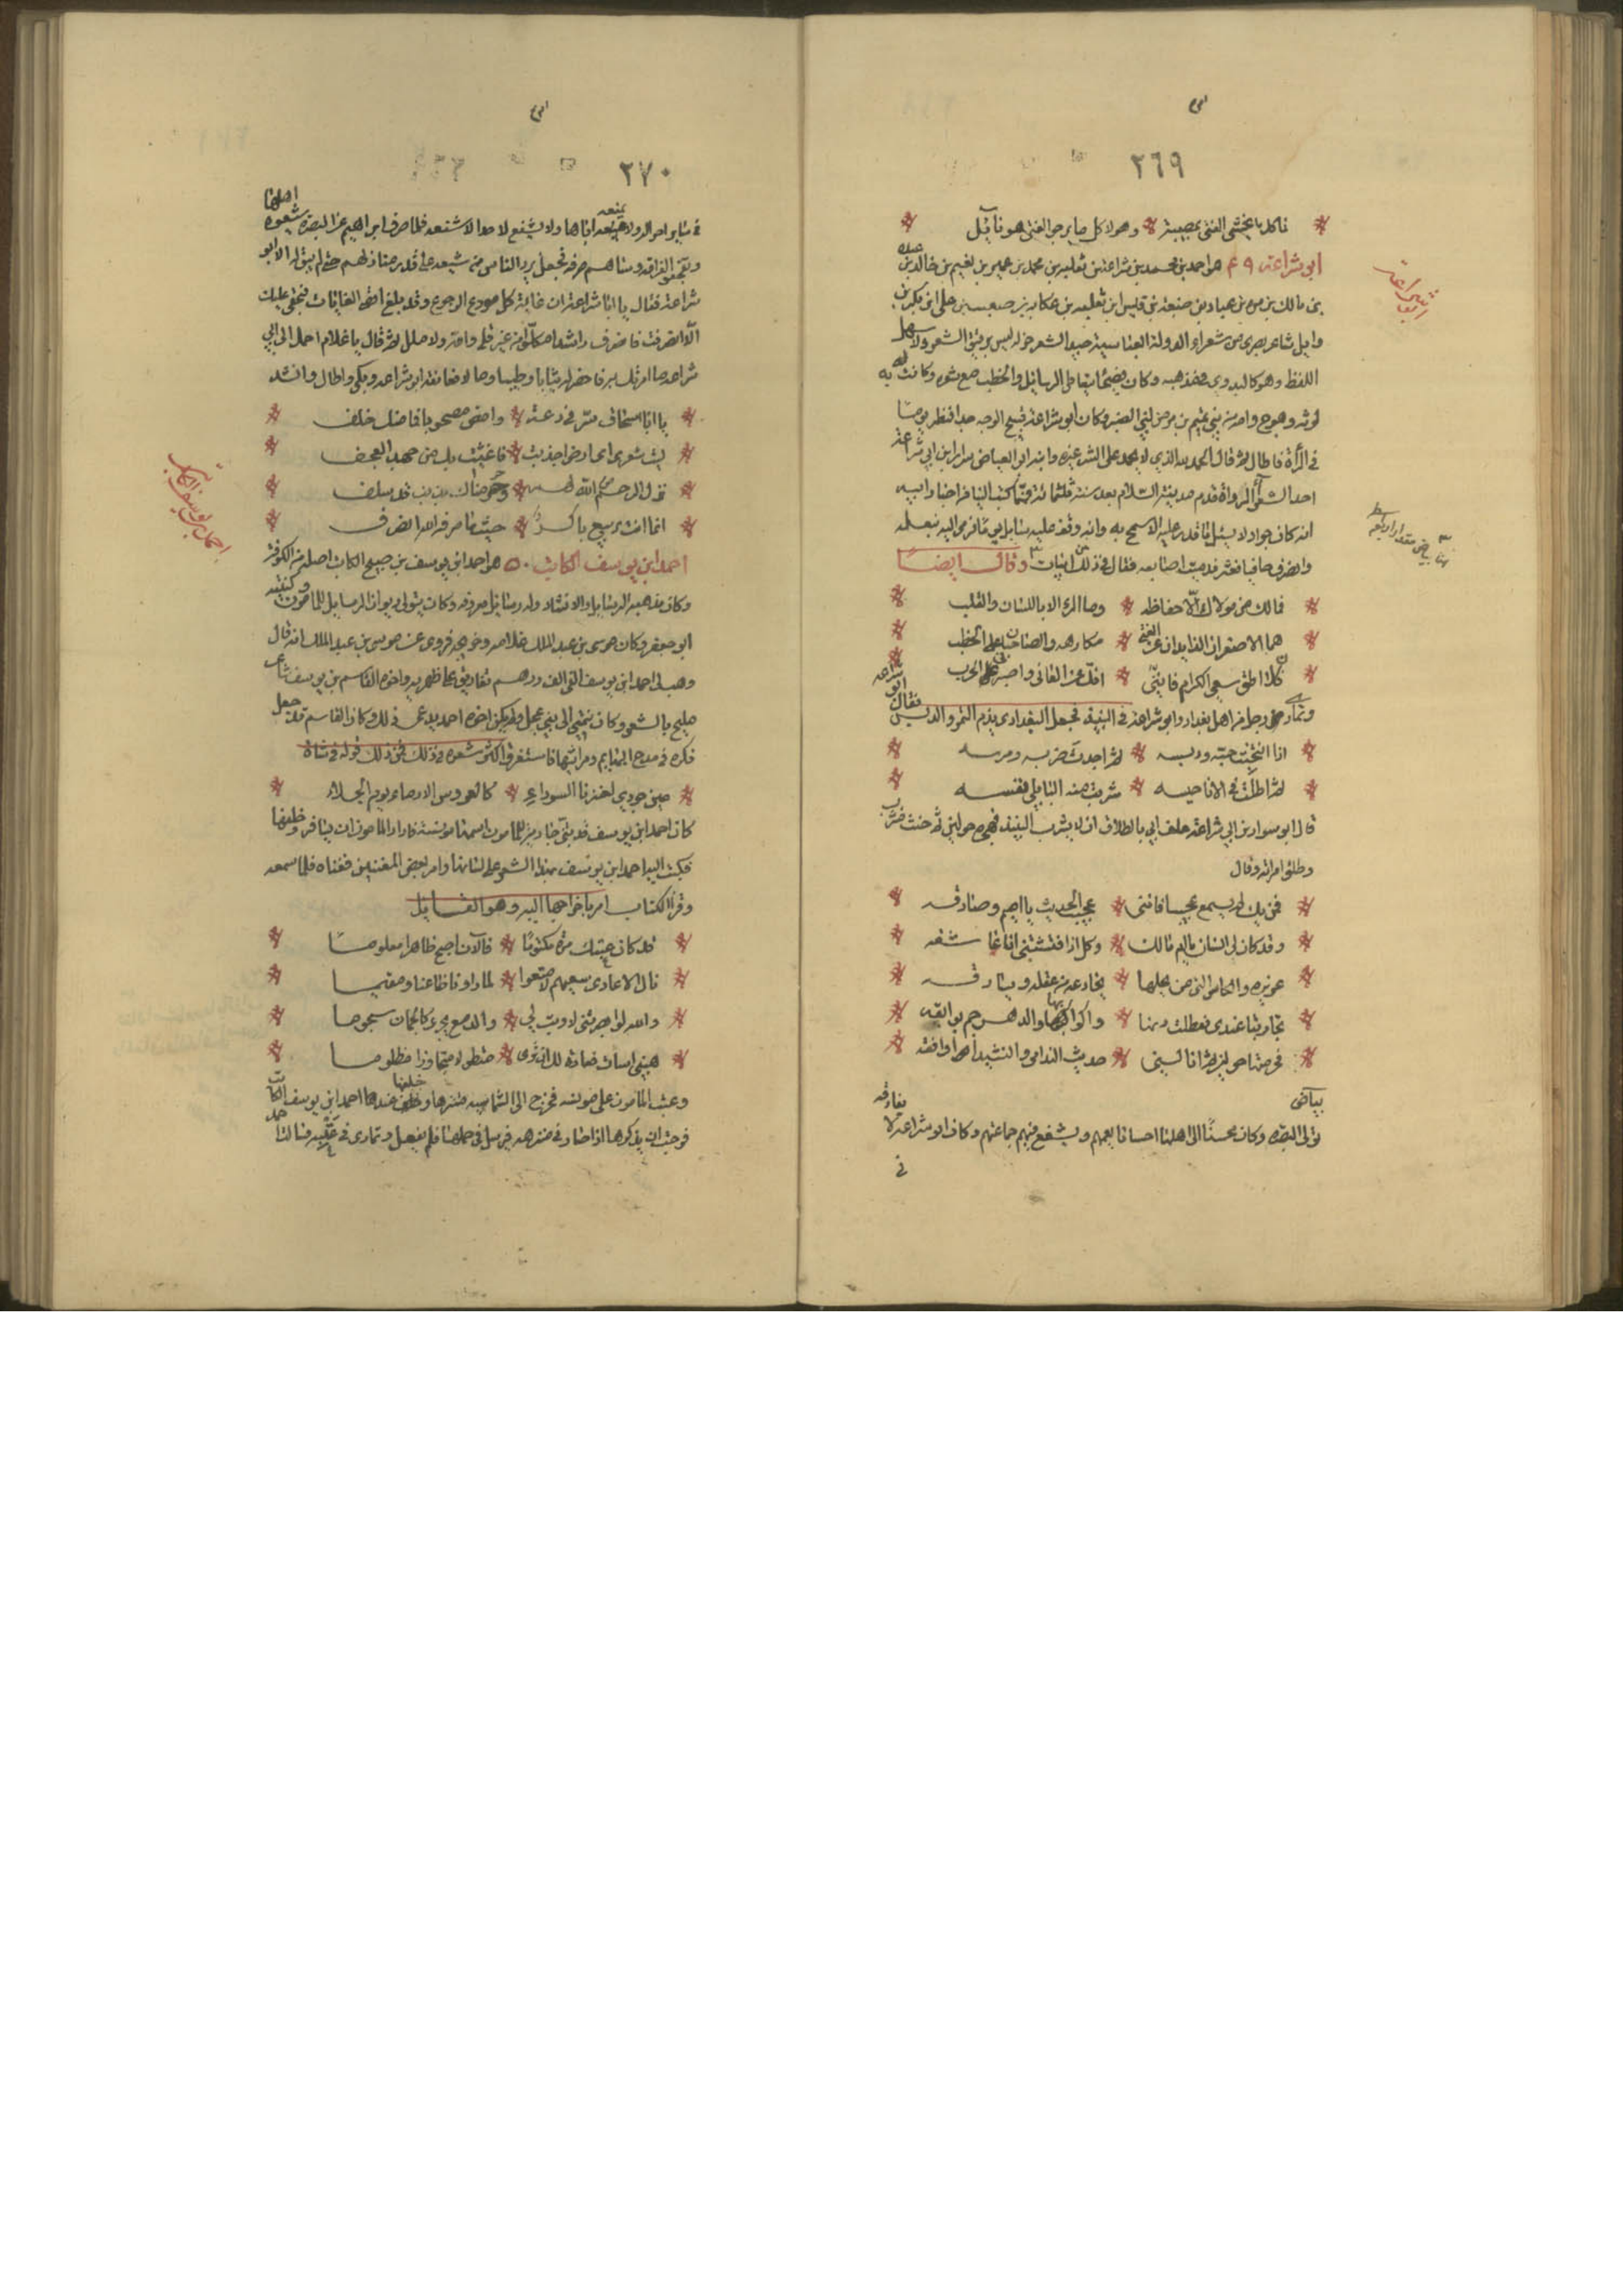 ٢٦٩
فما كل ما يخشى الفتى بمصيبة وهولا كل ما يرجو الفتى هو نايل
ابي شراعة ٤٩ هو احمد بن محمد بن شراعة بن ثعلبة بن محمد بن عمير بن نعيم بن خالد بن عبده
بن مالك بن عباد بن ضبيعة بن قيس ابن ثعلبة بن عكابة بن صعب بن علي ابن بكر بن
وايل شاعر بصري من شعراء الدولة العباسية جيد الشعر جزله ليس برقيق الشعر ولا سهل
اللفظ وهو كالبدوي في مذهبه وكان فصيحا يتعاطى الرسايل والخطب مع شعره وكانت به
لوثة وهوج وامه من بني تميم من بني العنبر وكان ابو شراعة قبيح الوجه جدا فنظر يوما
في المرأة فاطال ثم قال الحمد لله الذي لا يحمد على الشر غيره وابنه ابو الفياض سوار ابن ابي شراعة
احد الشعراء الرواة قدم مدينة السلام بعد سنة ثلثمائة كتب الينا من اخبار ابيه
انه كان جوادا لا يسئل ما يقدر عليه الا سمح به وانه وقف عليه سايل يوما فرمى اليه نعله
وانصرف حافيا فعثر فدميت اصابعه فقال في ذلك ابيات وقال ايضا
فمالك من مولاك الا حفاظه وما المرء الا باللسان والقلب
هما الاصغران الذايدان عن الفتى مكارهه والصاحبان على الخطب
فان لا اطق سعي الكرام فانني افك عن العاني واصبر على الحرب
وتمارى رجل من اهل بغداد وابو شراعة في النبيذ فجعل البغدادي يذم التمر والدبس فقال ابو شراعة
اذا انتخبت حبه ودبسه ثم اجدت ضربه ومرسه
ثم اطلت في الانا حبسه شربت منه البابلي نفسه
قال ابو سوار بن ابي شراعة حلف ابي بالطلاق ان لا يشرب النبيذ فهجره حولين ثم حنث فشرب
وطلق امراته وقال
فمن يك لم يسمع عجيبا فانني عجيب الحديث يا اميم وصادقه
وقد كان لي انسان يا ام مالك وكل اذا فتشتني انا عاشقه
عزيزة والكاس التي من يحلها تخادعه عن عقله وتصادقه
تحاربتا عندي فعطلت دنها واكوابها والدهر جم بوايقه
فحرمتها حولين ثم اناب لي حديث الندامى والنشيد اوافقه
بياض
تولى البصرة وكان محسنا الى اهلها احسانا يعمهم ويشفع فيهم جماعتهم وكان ابو شراعة لا يفارقه
في
ابو شراعة
بياض مقدار اربعة اسطر
٢٧٠
في ساير امور الولاة يمنعه اياها ولا يشفع لاحد الا شفعه فلما صرف ابراهيم عن البصرة شيعوه اهلها
وتفجعوا لفراقه وساهم صرفه فجعل يرد الناس من تشييعه على قدر منازلهم حتى لم يبق له الا ابو
شراعة فقال يا ابا شراعة ان غاية كل مودع الرجوع وقد بلغ اقصى الغايات فبحقي عليك
الا انصرفت فاضرف راشدا مكلوا من غير قلى واقه ولا ملل ثم قال يا غلام احمل الى ابي
شراعة ما امرتك به فاحضر له ثيابا وطيبا ومالا فعانقه ابو شراعة وبكى واطال وانشد
يا ابا اسحاق سر في دعة وامض مصحوبا فما منك خلف
ليت شعري اي ارض اجدبت فاغيثت بك من جهد العجف
نزل الرحم من الله لهم وحرمناك بذنب قد سلف
انما انت ربيع باكر حيثما صرفه الله انصرف
احمد ابن يوسف الكاتب ٥٠ هو احمد ابن يوسف بن صبيح الكاتب اصله من الكوفة
وكان مذهبه الرسايل والانشاء وله رسايل معروفة وكان يتولى ديوان الرسايل للمامون وكنيته
ابو جعفر وكان موسى بن عبد الملك غلامه وخريجه فروي عن موسى بن عبد الملك انه قال
وهب لي احمد ابن يوسف الفي الف درهم تفاريق عن ظهر يد واخوه القاسم بن يوسف شاعر
مليح بالشعر وكان ينتمي الى بني عجل ولم يكن اخوه احمد يدعي ذلك وكان القاسم قد جعل
فكره في مدح البهايم ومراثيها فاستغرق اكثر شعره في ذلك فمن ذلك قوله في شاة
عين جودي لعنزنا السوداء كالعروس الادماء يوم الجلاء
كان احمد ابن يوسف قد بنى جارية للمامون اسمها مونسة فاراد المامون ان يسافر وخلفها
فكتب اليه احمد ابن يوسف بهذا الشعر على لسانها وامر بعض المغنيين فغناه فلما سمعه
وقرأ الكتاب امر باخراجها اليه وهو القايل
قد كان عتبك مرة مكتوما فالآن اصبح ظاهرا معلوما
نال الاعادي سؤلهم لا متعوا لما راونا ظاعنا ومقيما
والله لو ابصرتني لاويت لي والدمع يجري كالجمان سجوما
هبني اسات فعادة لك ان ترى متطولا متجاوزا مظلوما
وعتب المامون على مونسة فخرج الى الشماسية متنزها وخلفها عند احمد ابن يوسف الكاتب
فوجبت ان يذكرها اذا صار في متنزهه فيرسل في حملها فلم يفعل وتمادى في عتبه فسالت احمد
احمد بن يوسف الكاتب